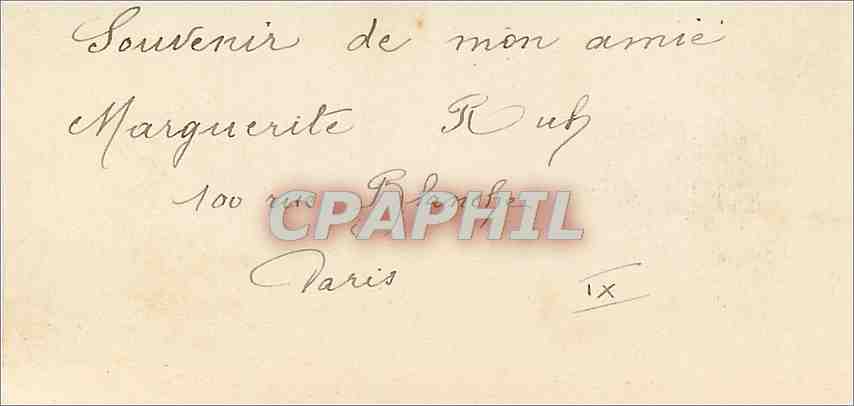 Souvenir de mon amie
Marguerite Ruh
100 rue Blanche
CPAPHIL
Paris IX